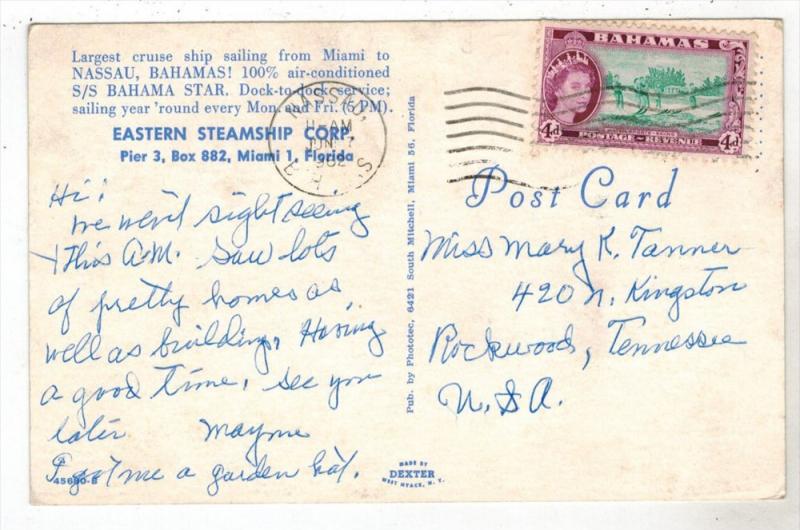 Largest cruise ship sailing from Miami to
NASSAU, BAHAMAS! 100% air-conditioned
S/S BAHAMA STAR. Dock-to-dock service;
sailing year 'round every Mon. and Fri. (5 PM).
EASTERN STEAMSHIP CORP.
Pier 3, Box 882, Miami 1, Florida
Hi!
We went sight seeing
this A.M. Saw lots
of pretty homes as
well as building, Having
a good time, see you
later Mayme
I got me a garden hat.
45690-B
Pub. by Phototec, 6421 South Mitchell, Miami 56, Florida
MADE BY
DEXTER
WEST NYACK, N. Y.
NASSAU,
AM
1962
BAHAMAS
4d
POSTAGE & REVENUE
4d
Post Card
Miss Mary K. Tanner
420 N. Kingston
Rockwood, Tennessee
U.S.A.